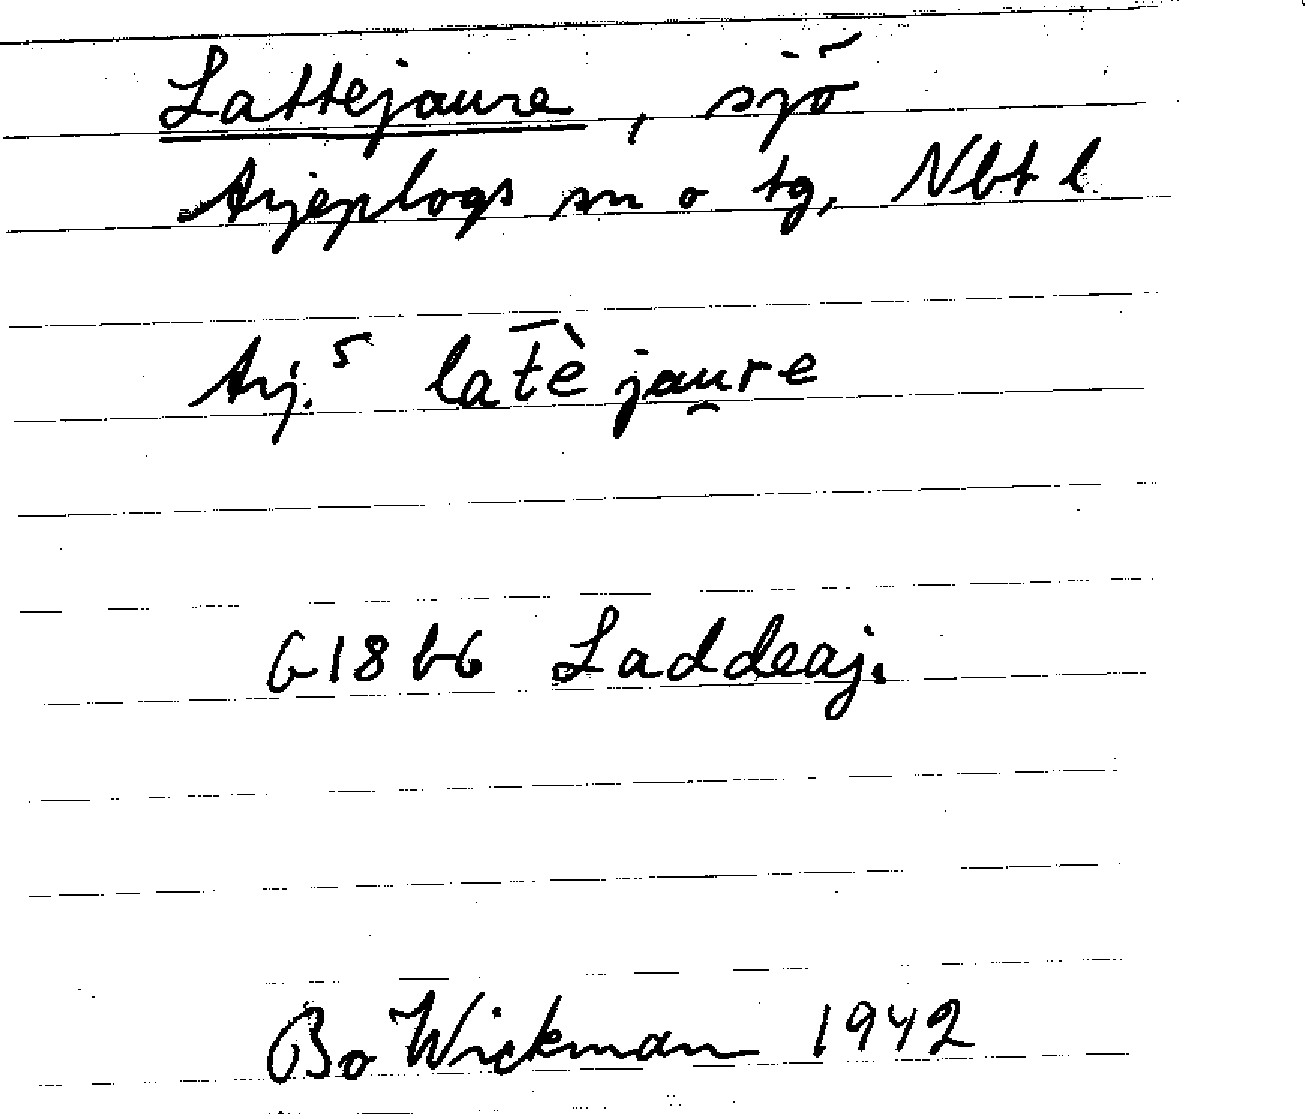 Lattejaure, sjö
Arjeplogs sn o tg, Nbt l
Arj.⁵ lat̄è jau̯re
G18 b6 Laddeaj.
Bo Wickman 1942